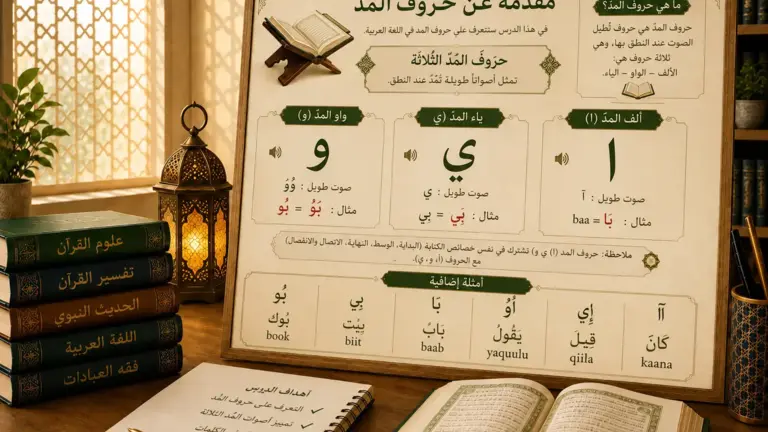 مقدمة عن حروف المد
في هذا الدرس ستتعرف على حروف المد في اللغة العربية.
حروفَ المَدّ الثُلاثَة
تمثل أصواتاً طويلة تُمَدّ عند النطق.
ما هي حروف المدّ؟
حروف المدّ هي حروف تُطيل
الصوت عند النطق بها، وهي
ثلاثة حروف هي:
الألف – الواو – الياء.
ألف المدّ (ا)
ا
صوت طويل : آ
مثال : بَا = baa
ياء المدّ (ي)
ي
صوت طويل : ي
مثال : بَِي = بي
واو المدّ (و)
و
صوت طويل : وُوَ
مثال : بَوُ = بُو
ملاحظة: حروف المد (ا ي و) تشترك في نفس خصائص الكتابة (البداية، الوسط، النهاية، الاتصال والانفصال)
مع الحروف (أ، و، ي).
أمثلة إضافية
آا
كَانَ
kaana
إِي
قِيلَ
qiila
أُوُ
يَقُولُ
yaquulu
بَا
بَابُ
baab
بِي
بِيْت
biit
بُو
بُوك
book
علوم القرآن
تفسير القرآن
الحديث النبوي
اللغة العربية
فقه العبادات
أهداف الدرس
التعرف على حروف المد
تمييز أصوات المد الثلاثة
الكلمات